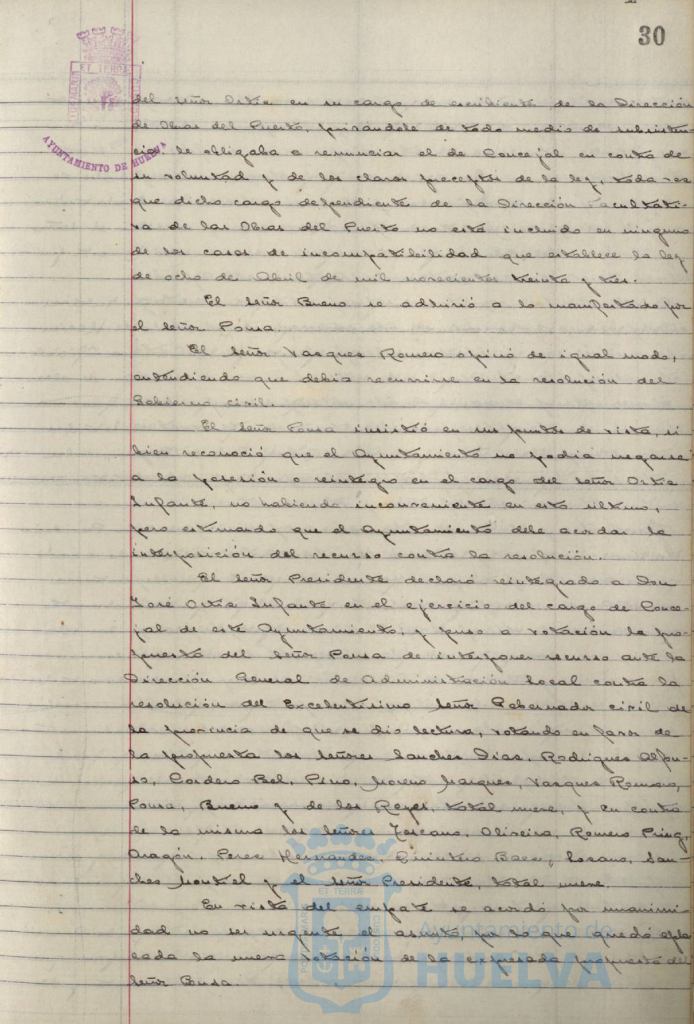 30
AYUNTAMIENTO DE HUELVA
del Señor Ortiz en su cargo de escribiente de la Dirección
de Obras del Puerto, privándole de todo medio de subsisten-
cia, le obligaba a renunciar el de Concejal en contra de
su voluntad y de los claros preceptos de la ley, toda vez
que dicho cargo dependiente de la Dirección Facultati-
va de las Obras del Puerto no está incluido en ninguno
de los casos de incompatibilidad que establece la ley
de ocho de Abril de mil novecientos treinta y tres.
El Señor Bueno se adhirió a lo manifestado por
el Señor Ponsa.
El Señor Vasques Romero opinó de igual modo,
entendiendo que debía recurrirse en la resolución del
Gobierno civil.
El Señor Ponsa insistió en sus puntos de vista, si
bien reconoció que el Ayuntamiento no podía negarse
a la posesión o reintegro en el cargo del Señor Ortiz
Infante, no habiendo inconveniente en esto último,
pero estimando que el Ayuntamiento debe acordar la
interposición del recurso contra la resolución.
El Señor Presidente declaró reintegrado a Don
José Ortiz Infante en el ejercicio del cargo de Conce-
jal de este Ayuntamiento, y puso a votación la pro-
puesta del Señor Ponsa de interponer recurso ante la
Dirección General de Administración local contra la
resolución del Excelentísimo Señor Gobernador civil de
la provincia de que se dio lectura, votando en favor de
la propuesta los Señores Sanches Dias, Rodrigues Alfon-
so, Cordero Bel, Pino, Moreno Marques, Vasques Romero,
Ponsa, Bueno y de los Reyes, total nueve, y en contra
de la misma los Señores Toscano, Oliveira, Romero
Aragón, Peres Hernandes, Quintero Baez, Lozano, San-
ches Montiel y el Señor Presidente, total nueve.
En vista del empate se acordó por unanimi-
dad no ser urgente el asunto, por lo que quedó apla-
cada la nueva votación de la expresada propuesta del
Señor Ponsa.
Ayuntamiento de
HUELVA